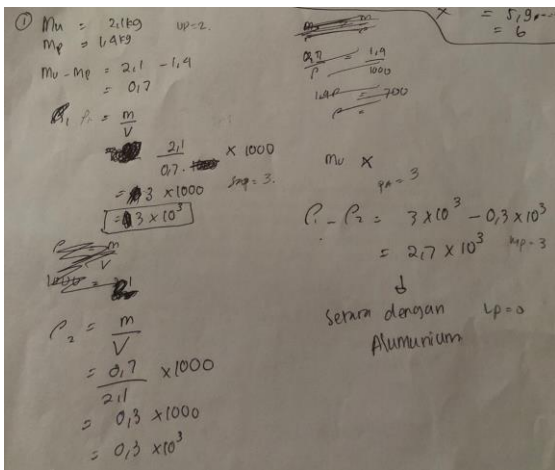 ① Mu = 2,1kg up=2.
Mp = 1,4kg
Mu - Mp = 2,1 - 1,4
= 0,7
ρ₁ = m/V
2,1/0,7 × 1000
= 3 × 1000
= 3 × 10³
ρ₂ = m/V
= 0,7/2,1 × 1000
= 0,3 × 1000
= 0,3 × 10³
x = 5,9
= 6
1,4/1000
= 700
Mu x
= 3
ρ₁ - ρ₂ = 3 × 10³ - 0,3 × 10³
= 2,7 × 10³ mp = 3
↓
Setara dengan Lp=0
Alumunium